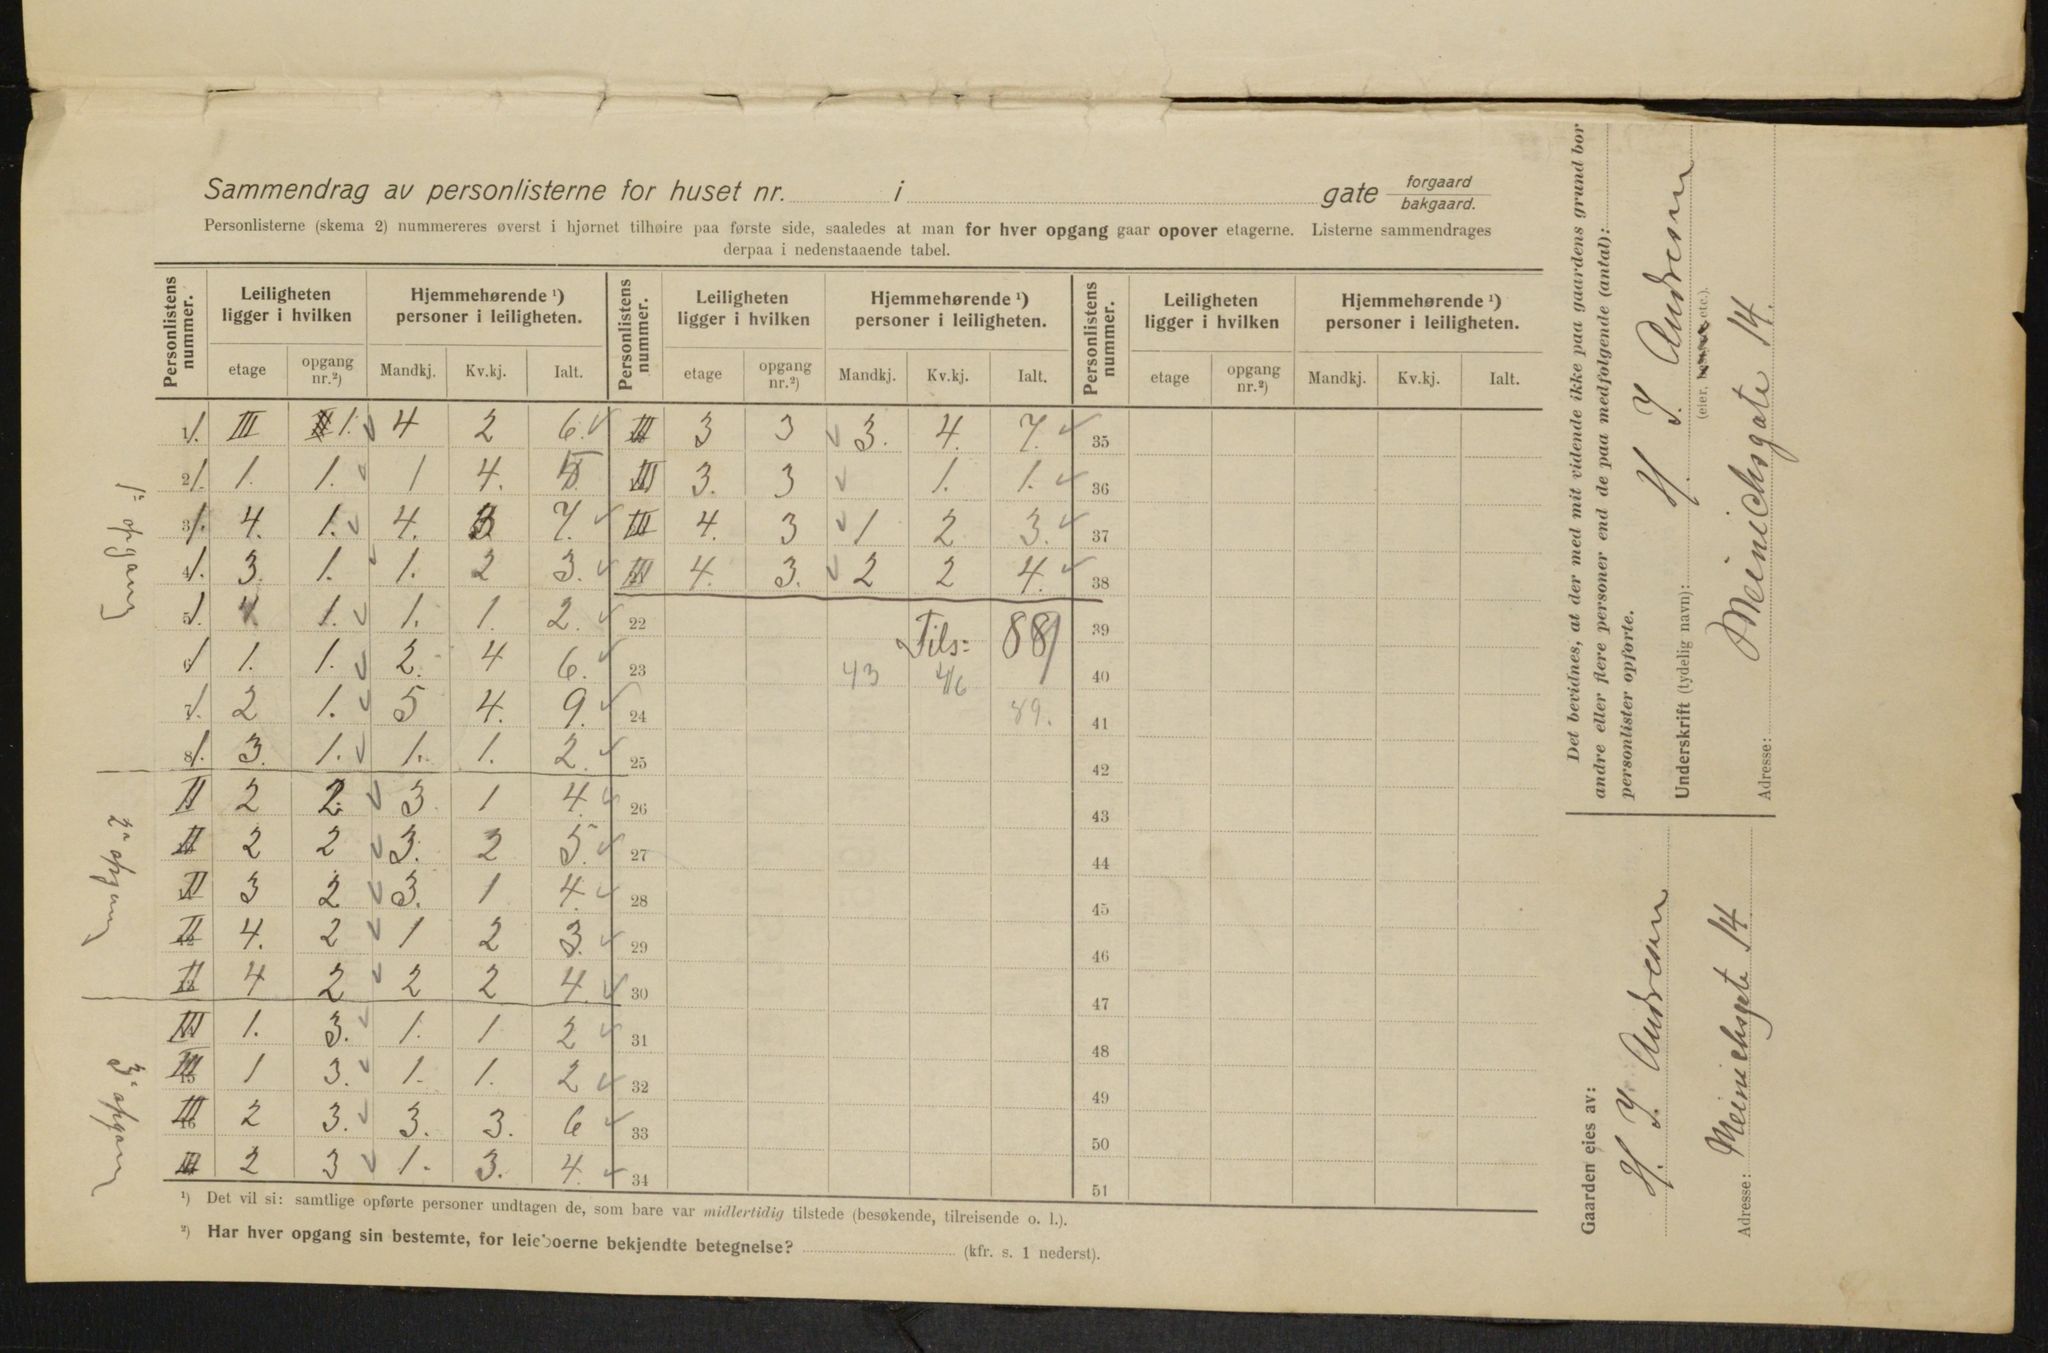 Sammendrag av personlisterne for huset nr. i gate forgaard bakgaard.
Personlisterne (skema 2) nummereres øverst i hjørnet tilhøire paa første side, saaledes at man for hver opgang gaar opover etagerne. Listerne sammendrages
derpaa i nedenstaaende tabel.
Personlistens nummer. Leiligheten ligger i hvilken Hjemmehørende ¹) personer i leiligheten. Personlistens nummer. Leiligheten ligger i hvilken Hjemmehørende ¹) personer i leiligheten. Personlistens nummer. Leiligheten ligger i hvilken Hjemmehørende ¹) personer i leiligheten.
etage opgang nr.²) Mandkj. Kv.kj. Ialt. etage opgang nr.²) Mandkj. Kv.kj. Ialt. etage opgang nr.²) Mandkj. Kv.kj. Ialt.
1. III 1. 4 2 6. III 3 3 3. 4. 7. 35
1. 1. 1. 1 4. 5 III 3. 3 1. 1. 36
1. 4. 1. 4. 3 7. III 4. 3 1 2 3. 37
1. 3. 1. 1. 2 3. III 4. 3. 2 2 4. 38
1. 4. 1. 1. 1. 2. 22 Tils= 88 39
1 1. 1. 2. 4 6. 23 43 46 40
1. 2 1. 5 4. 9. 24 89. 41
1. 3. 1. 1. 1. 2. 25 42
II 2 2. 3. 1 4. 26 43
II 2 2 3. 2 5. 27 44
II 3 2 3. 1 4. 28 45
II 4. 2 1 2 3. 29 46
II 4 2 2 2 4. 30 47
III 1. 3. 1. 1 2 31 48
III 1 3. 1. 1. 2 32 49
III 2 3. 3. 3. 6 33 50
III 2 3 1. 3. 4. 34 51
1ᵉ opgang
2ᵉ opgang
3ᵉ opgang
¹) Det vil si: samtlige opførte personer undtagen de, som bare var midlertidig tilstede (besøkende, tilreisende o. l.).
²) Har hver opgang sin bestemte, for leieboerne bekjendte betegnelse? (kfr. s. 1 nederst).
Det bevidnes, at der med mit vidende ikke paa gaardens grund bor
andre eller flere personer end de paa medfølgende (antal):
personlister opførte.
H. J. Andresen
Underskrift (tydelig navn):
(eier, etc.).
Meinichsgate 14
Adresse:
Gaarden eies av:
H. J. Andresen
Meinichsgate 14
Adresse: